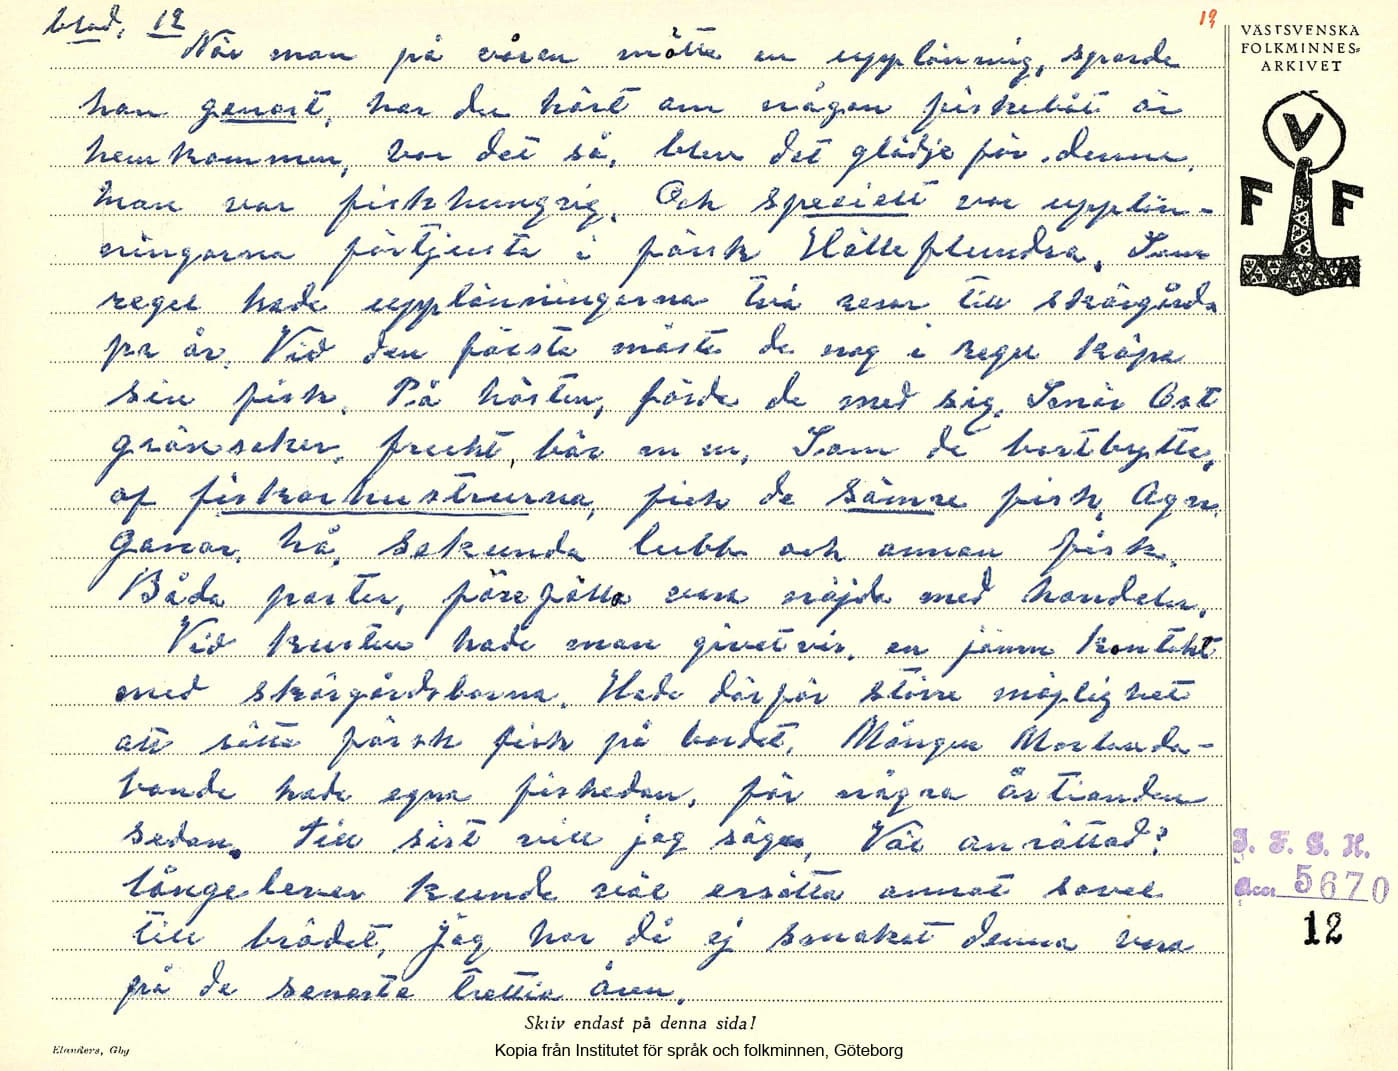 blad. 12
12
När man på våren mötte en upplänning, sporde
han genast, har du hört om någon fiskebåt är
hemkommen, var det så, blev det glädje för denne,
Man var fiskhungrig. Och speciellt var upplän-
ningarna förtjusta i färsk Hälleflundra. Som
regel hade upplänningarna två resor till skärgårds
pr år. Vid den första måste de nog i regel köpa
sin fisk. På hösten, förde de med sig, Smör Ost
grönsaker, frukt, bär m m, Som de bortbytte,
af fiskarhustrurna, fick de sämre fisk, Agn.
Ganar, hå, sekunda lubb och annan fisk.
Båda parter, föreföllo vara nöjda med handeln.
Vid kusten hade man givetvis, en jämn kontakt
med skärgårdsborna. Hade därför större möjlighet
att sätta färsk fisk på bordet. Mången Morlanda-
bonde hade egna fiskedon, för några årtionden
sedan. Till sist vill jag säga, Väl anrättad?
långe lever kunde väl ersätta annat sovel
till brödet, Jag har då ej smakat denna vara
på de senaste trettio åren.
Skriv endast på denna sida!
Elanders, Gbg
Kopia från Institutet för språk och folkminnen, Göteborg
VÄSTSVENSKA
FOLKMINNES-
ARKIVET
V
F F
I. F. G. H.
Acc. 5670
12